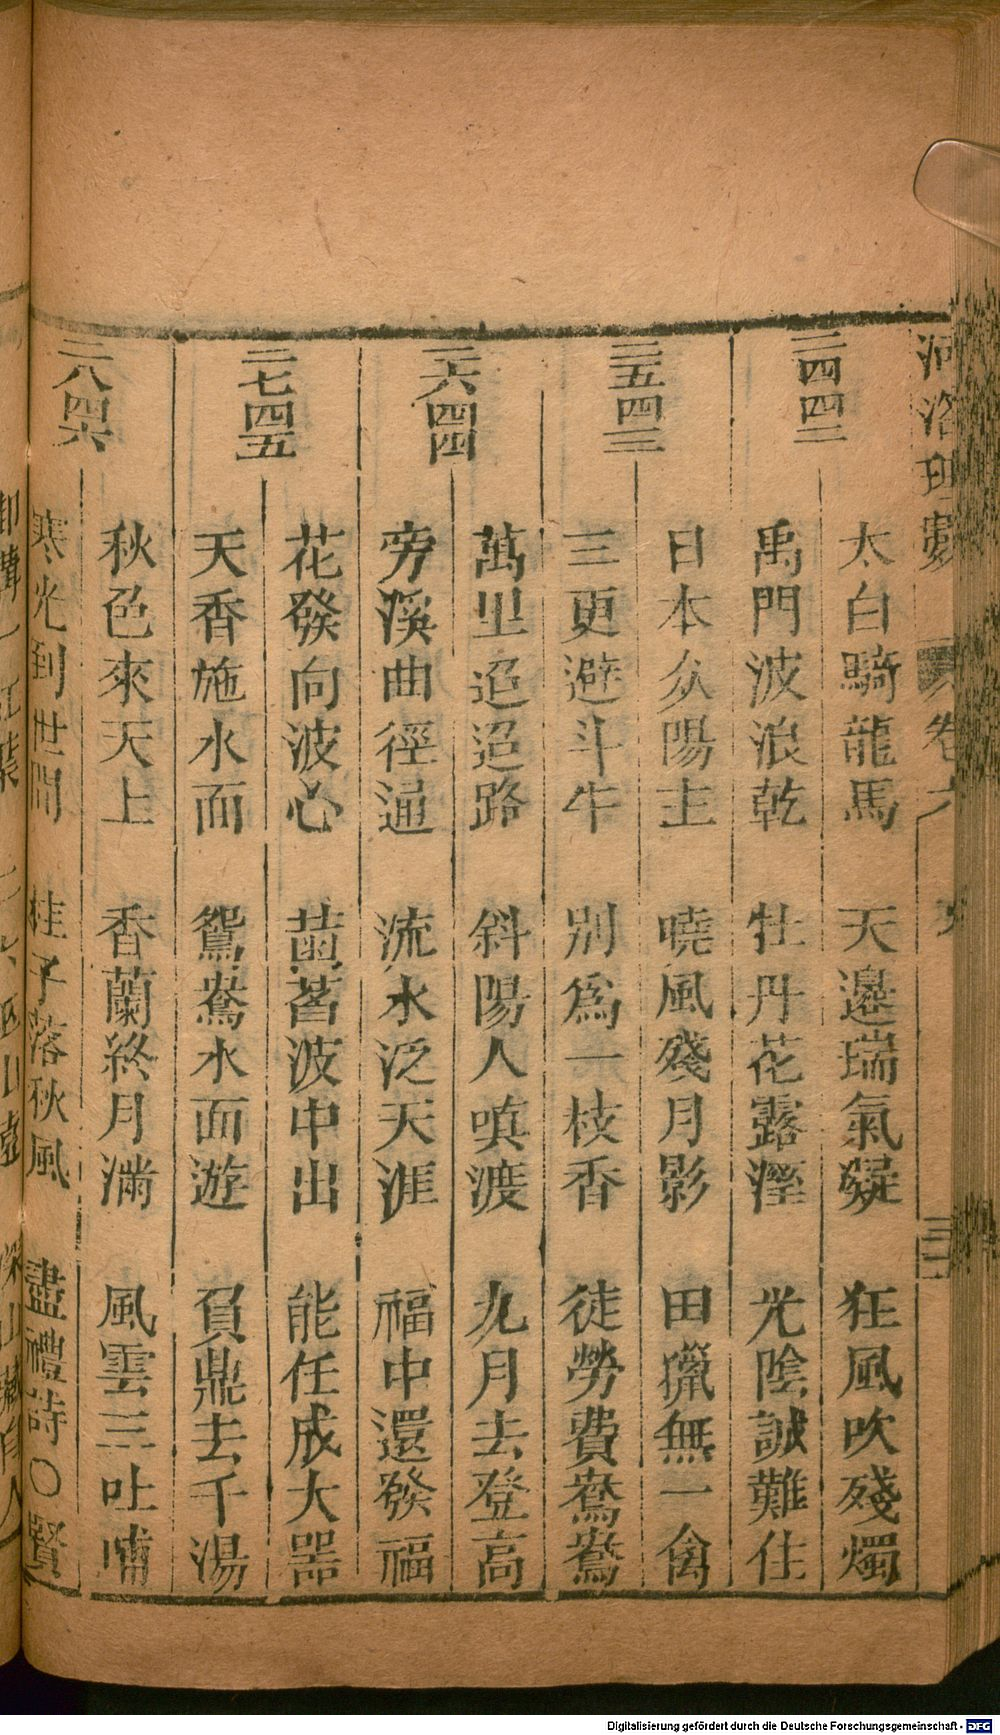 河洛理數 卷六
太白騎龍馬 天邊瑞氣凝 狂風吹殘燭
二四四二
禹門波浪乾 牡丹花露溼 光陰誠難住
日本众陽主 曉風殘月影 田獵無一禽
二五四三
三更避斗牛 别爲一枝香 徒勞費鴛鴦
萬里迢迢路 斜陽人嗔渡 九月去登高
二六四四
旁溪曲徑通 流水泛天涯 福中還發福
花發向波心 菡萏波中出 能任成大器
二七四五
天香施水面 鴛鴦水面遊 負鼎去千湯
秋色來天上 香蘭終月滿 風雲三吐哺
二八四六
寒光到世間 桂子落秋風 盡禮詩〇賢
Digitalisierung gefördert durch die Deutsche Forschungsgemeinschaft - DFG